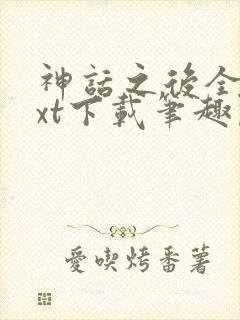 神話之後全
xt下載筆趣
愛喫烤番薯